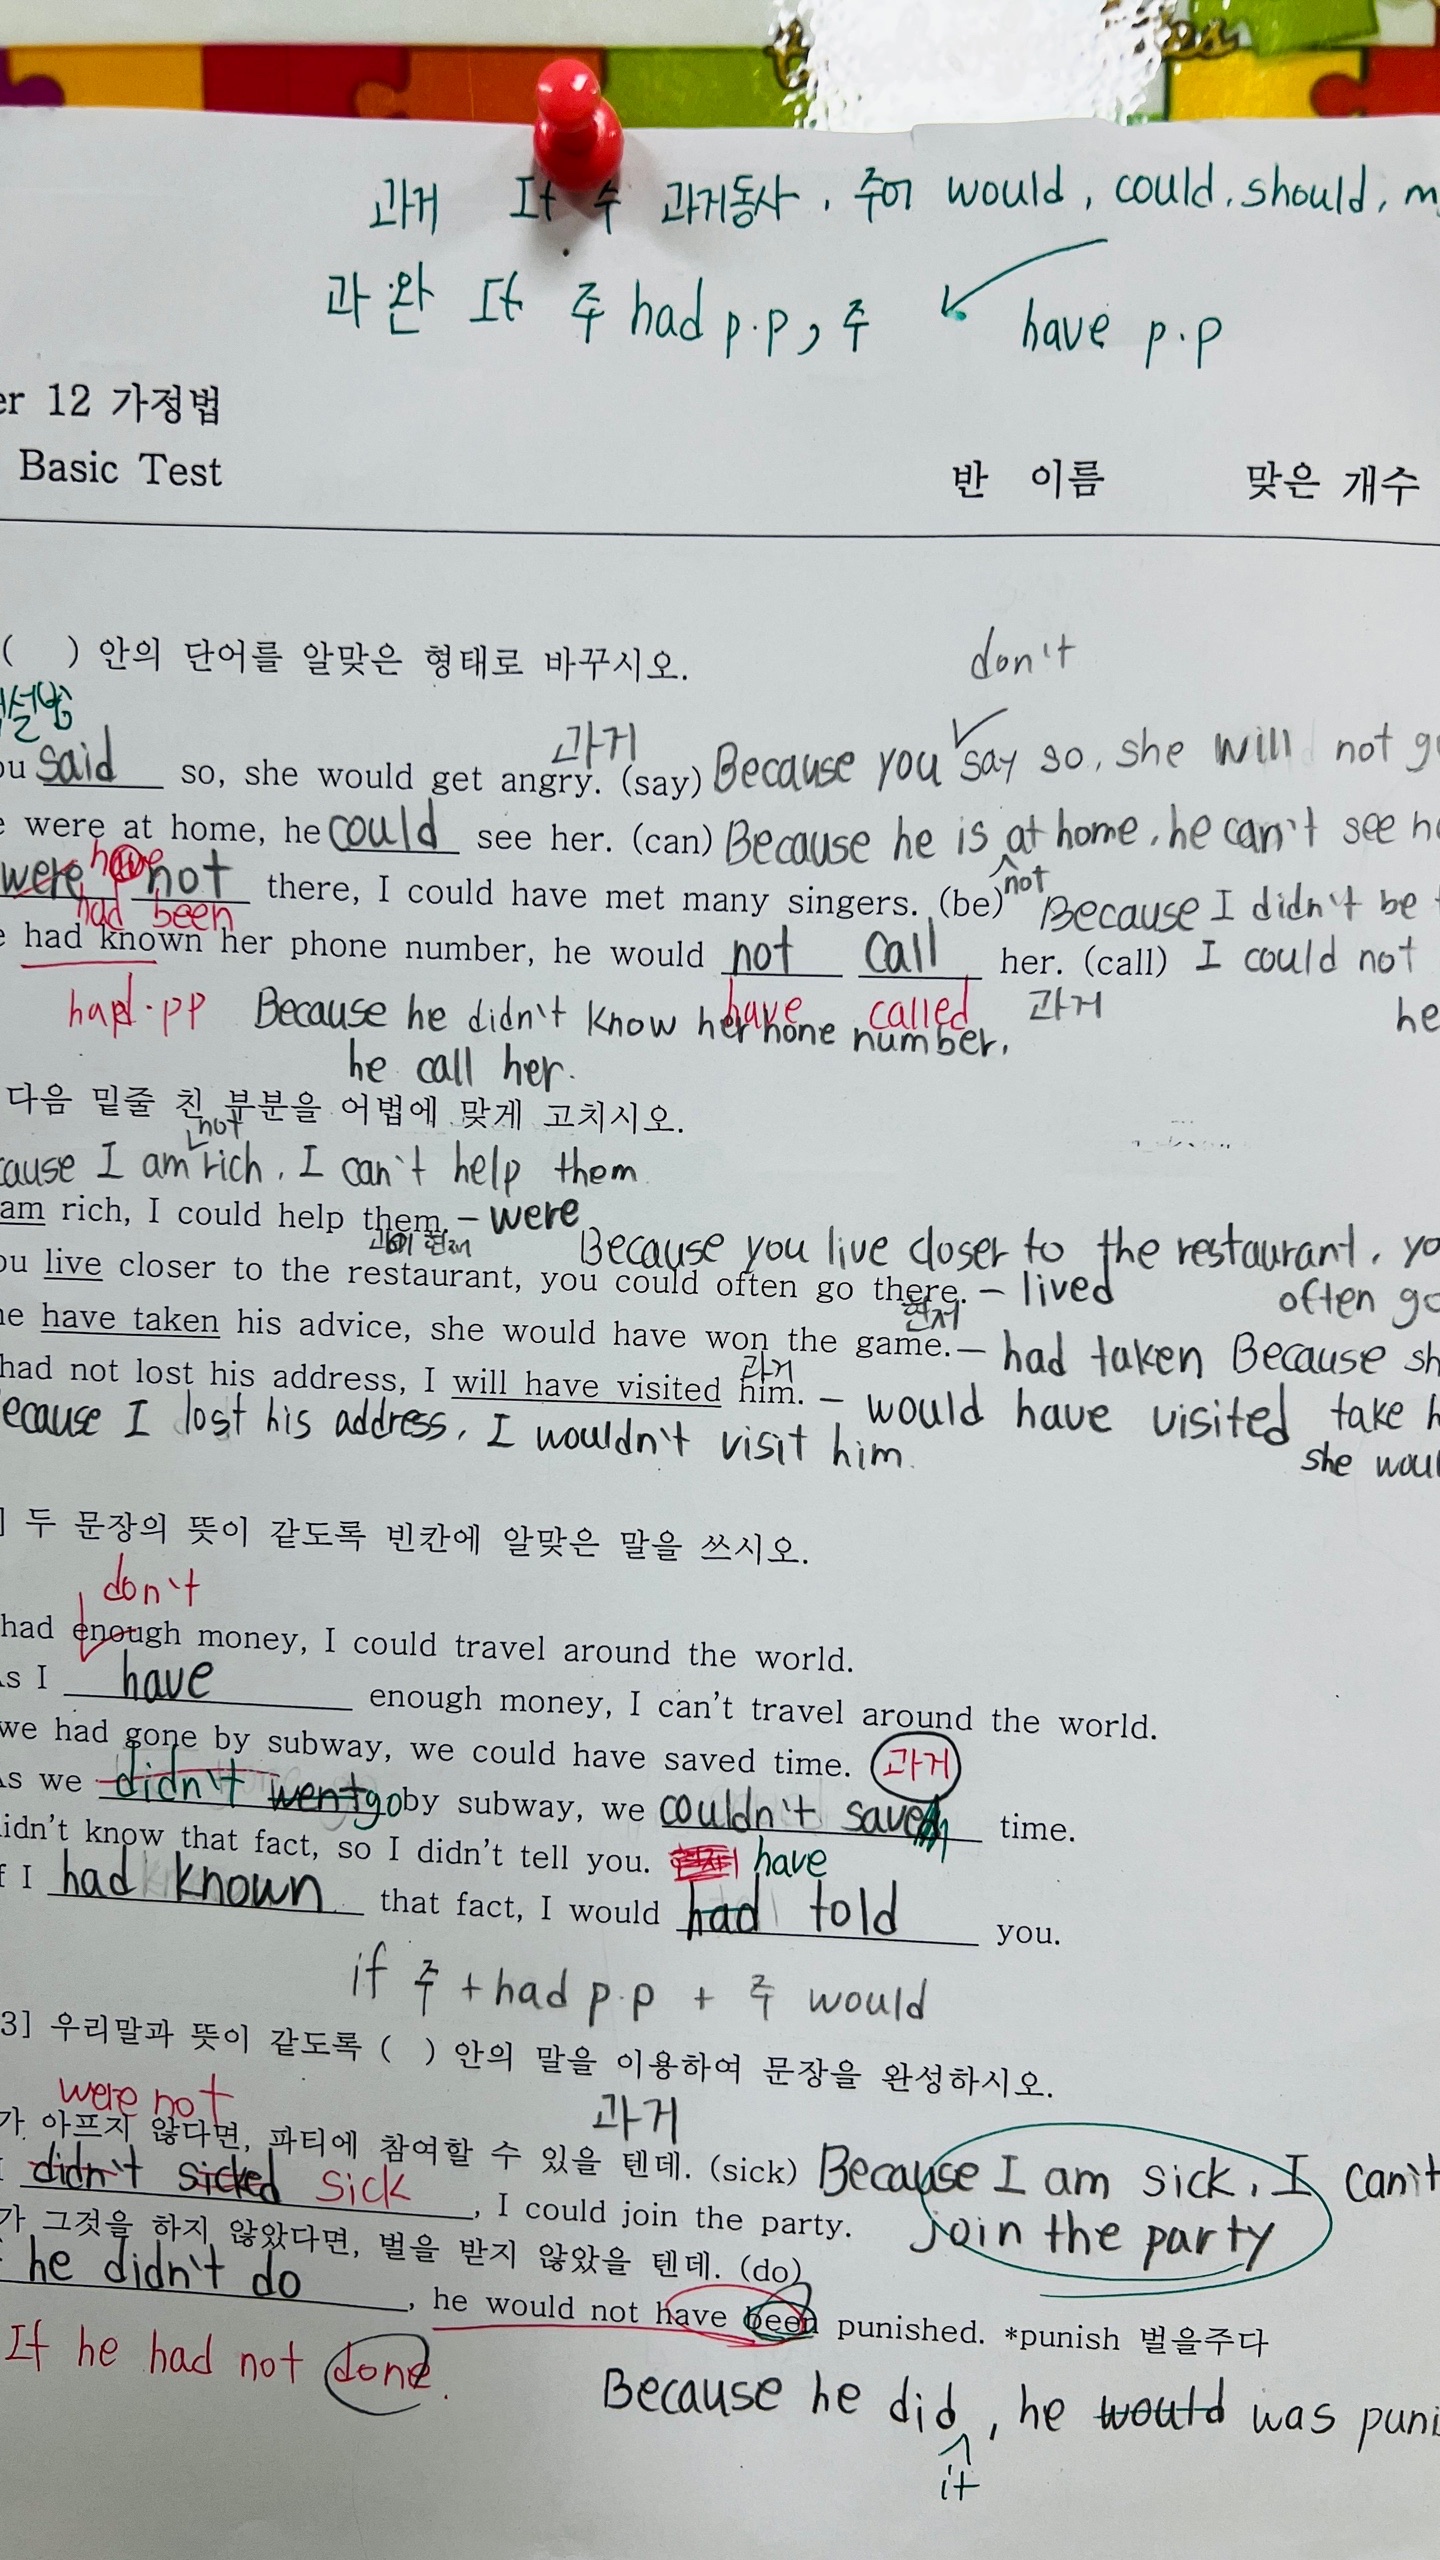 과거 If 주 과거동사, 주어 would, could, should, m
과완 If 주 had p.p, 주 have p.p
er 12 가정법
Basic Test
반 이름 맞은 개수
( ) 안의 단어를 알맞은 형태로 바꾸시오.
don't
과거
ou said so, she would get angry. (say) Because you say so, she will not g
e were at home, he could see her. (can) Because he is at home, he can't see he
not
were have not there, I could have met many singers. (be) Because I didn't be t
had been
e had known her phone number, he would not call her. (call) I could not
had p.p Because he didn't know her hone number, have called 과거 he
he call her.
다음 밑줄 친 부분을 어법에 맞게 고치시오.
not
cause I am rich, I can't help them
am rich, I could help them. - were
Because you live closer to the restaurant, yo
ou live closer to the restaurant, you could often go there. - lived often go
현재
he have taken his advice, she would have won the game. - had taken Because sh
과거
had not lost his address, I will have visited him. - would have visited take h
ecause I lost his address, I wouldn't visit him. she woul
] 두 문장의 뜻이 같도록 빈칸에 알맞은 말을 쓰시오.
don't
had enough money, I could travel around the world.
As I have enough money, I can't travel around the world.
we had gone by subway, we could have saved time. 과거
As we didn't went go by subway, we couldn't save time.
idn't know that fact, so I didn't tell you. have
f I had known that fact, I would had told you.
if 주 + had p.p + 주 would
3] 우리말과 뜻이 같도록 ( ) 안의 말을 이용하여 문장을 완성하시오.
were not 과거
가 아프지 않다면, 파티에 참여할 수 있을 텐데. (sick) Because I am sick, I can't
didn't sicked sick, I could join the party. join the party
가 그것을 하지 않았다면, 벌을 받지 않았을 텐데. (do)
he didn't do, he would not have been punished. *punish 벌을주다
If he had not done.
Because he did, he would was puni
it